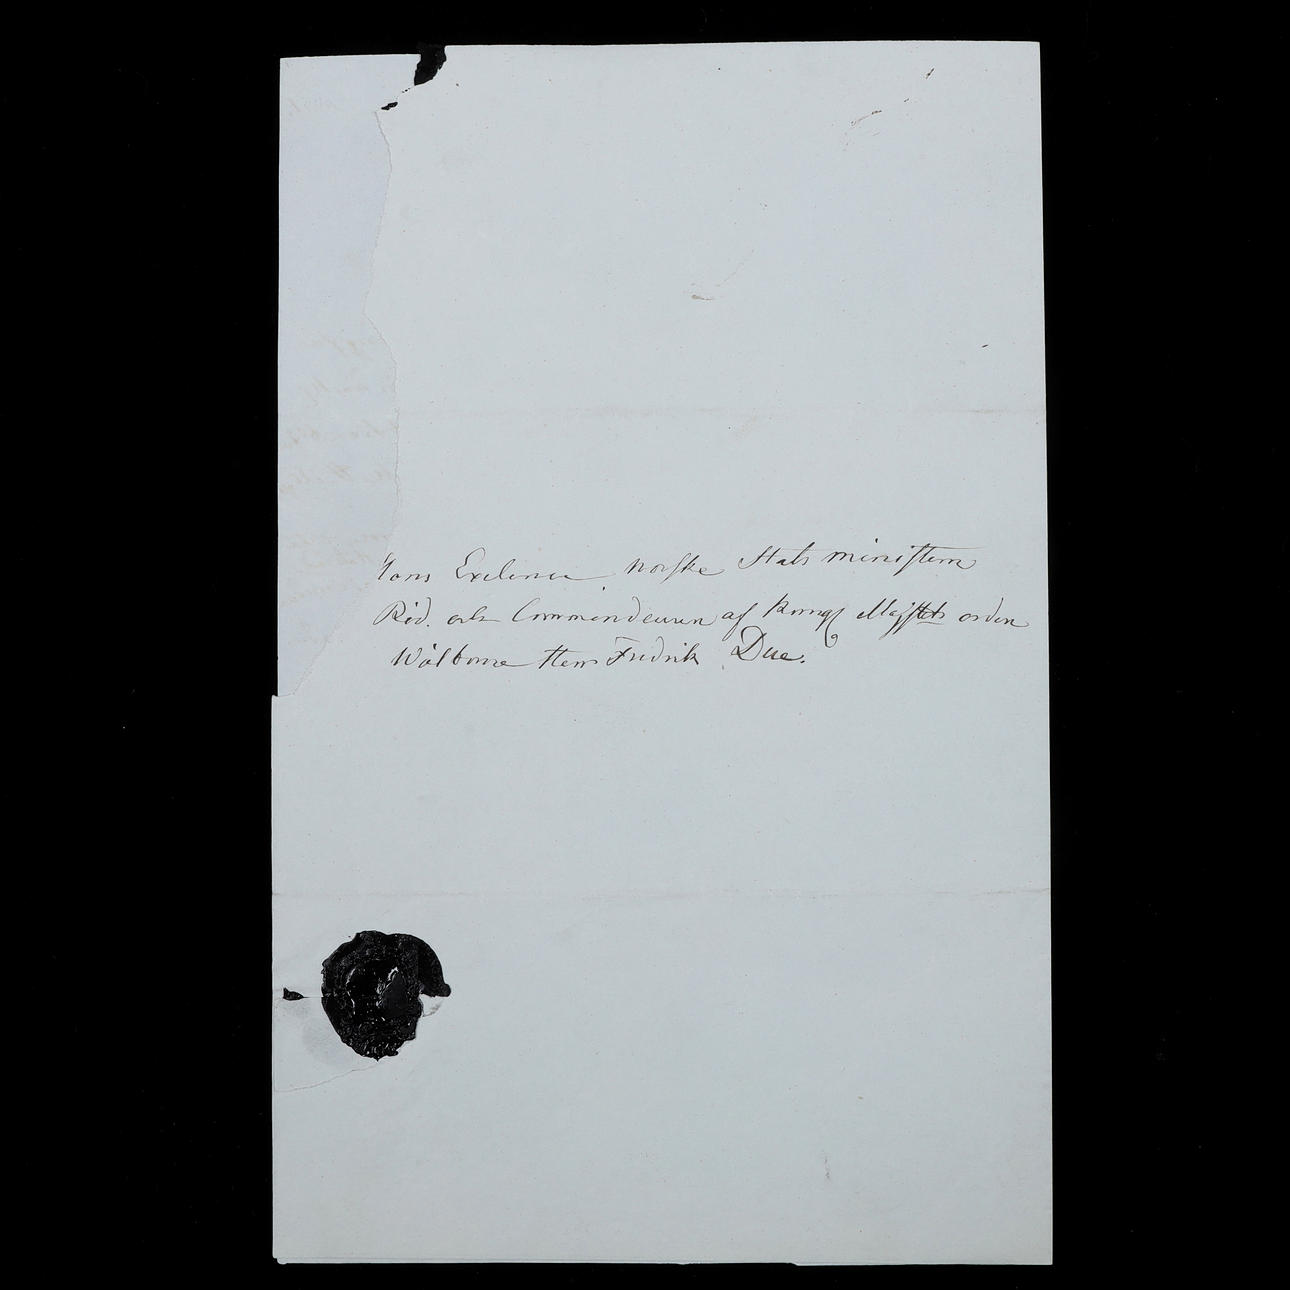 Hans Exelence Norske Stats ministern
Rid. och Commendeuren af Kongl Majstets orden
Wälborne Herr Fredrik Due.